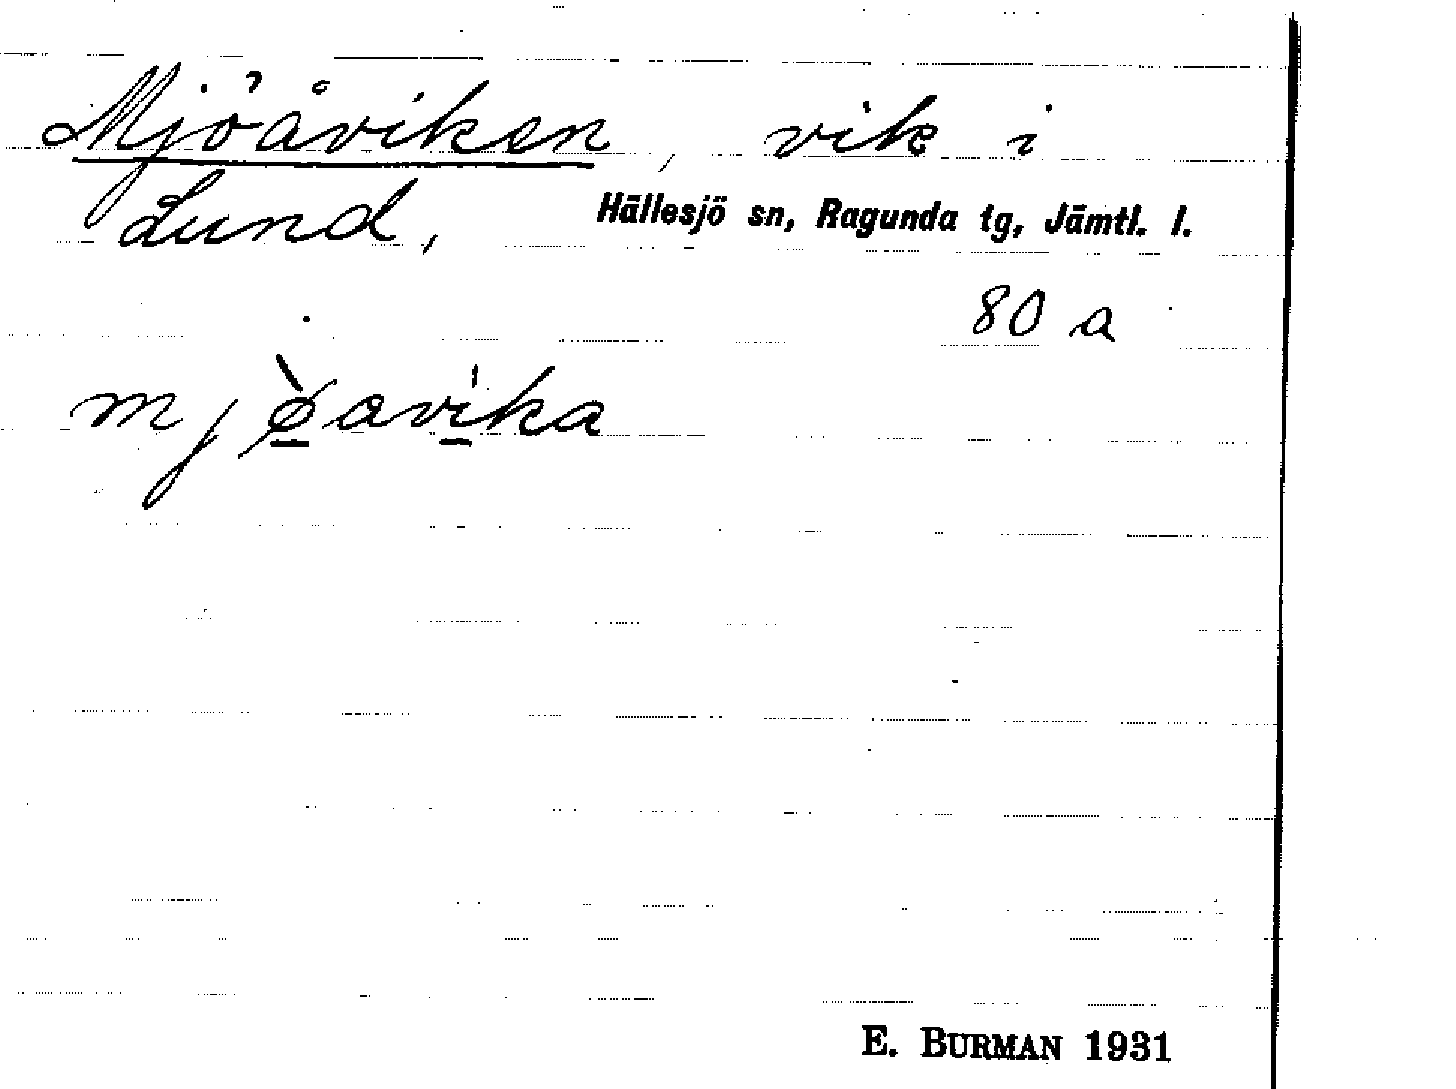 Mjöåviken, vik i
Lund, Hällesjö sn, Ragunda tg, Jämtl. l.
80 a
mjø̱̀avi̱ka
E. BURMAN 1931